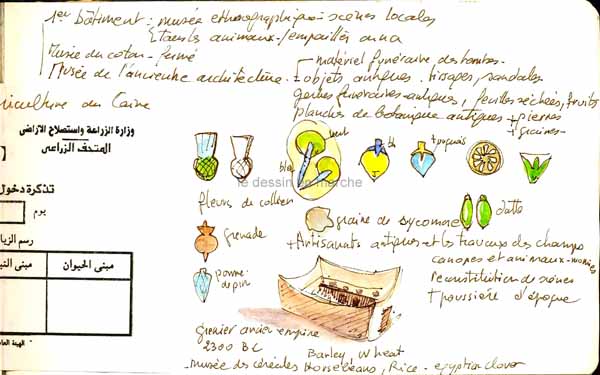 1er bâtiment : musée ethnographique - scènes locales
Etands animaux - empaillés
Musée du coton - fermé
Musée de l'ancienne architecture
- matériel funéraire des tombes -
+ objets antiques - tissages, sandales
gerbes funéraires antiques, feuilles séchées, fruits
planches de botanique antiques + pierres
+ graines -
iculture du Caire
وزارة الزراعة واستصلاح الأراضى
المتحف الزراعى
تذكرة دخول
يوم
رسم الزيا
مبنى الحيوان
مبنى الن
الهيئة العا
blé
le dessin en marche
fleurs de collier
grenade
pomme de pin
graine de sycomore
datte
+ Artisanats antiques et les travaux des champs
canopes et animaux - momies
reconstitution de scènes
+ poussière d'époque
grenier ancien empire
2300 BC
Barley, Wheat
musée des céréales Horsebeans, Rice - egyptian clover